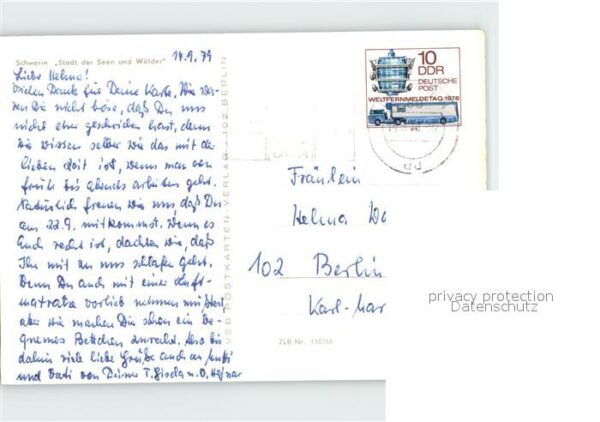 Schwerin „Stadt der Seen und Wälder"
14.9.79
Liebe Helma!
Vielen Dank für Deine Karte. Wir wä-
ren Dir nicht böse, daß Du uns
nicht eher geschrieben hast, denn
wir wissen selber wie das mit der
lieben Zeit ist, wenn man von
früh bis abends arbeiten geht.
Natürlich freuen wir uns, daß Du
am 22.9. mitkommst. Wenn es
Euch recht ist, dachten wir, daß
Ihr mit zu uns schlafen geht.
Denn Du auch mit einer Luft-
matratze vorlieb nehmen müßtest
aber wir machen Dir schon ein be-
quemes Bettchen zurecht. Also bis
dahin viele liebe Grüße auch an Mutti
und Vati von Deiner T. Gisela u. O.
VEB POSTKARTEN-VERLAG · 1102 BERLIN
10
DDR
DEUTSCHE
POST
WELTFERNMELDETAG 1978
Fräulein
Helma
102 Berlin
Karl-Mar
ZLB-Nr.
privacy protection
Datenschutz